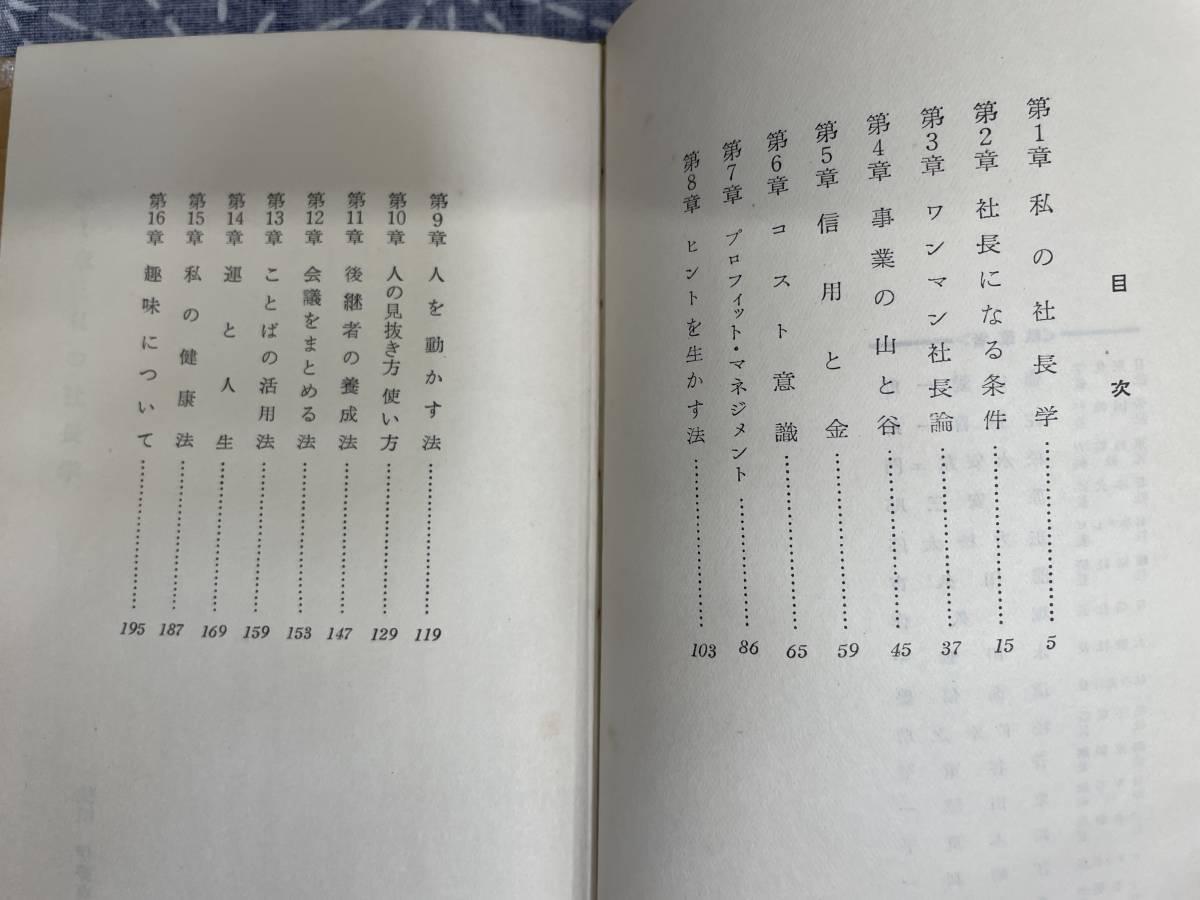 目次
第1章 私の社長学……………5
第2章 社長になる条件……………15
第3章 ワンマン社長論……………37
第4章 事業の山と谷……………45
第5章 信用と金……………59
第6章 コスト意識……………65
第7章 プロフィット・マネジメント……………86
第8章 ヒントを生かす法……………103
第9章 人を動かす法……………119
第10章 人の見抜き方使い方……………129
第11章 後継者の養成法……………147
第12章 会議をまとめる法……………153
第13章 ことばの活用法……………159
第14章 運と人生……………169
第15章 私の健康法……………187
第16章 趣味について……………195